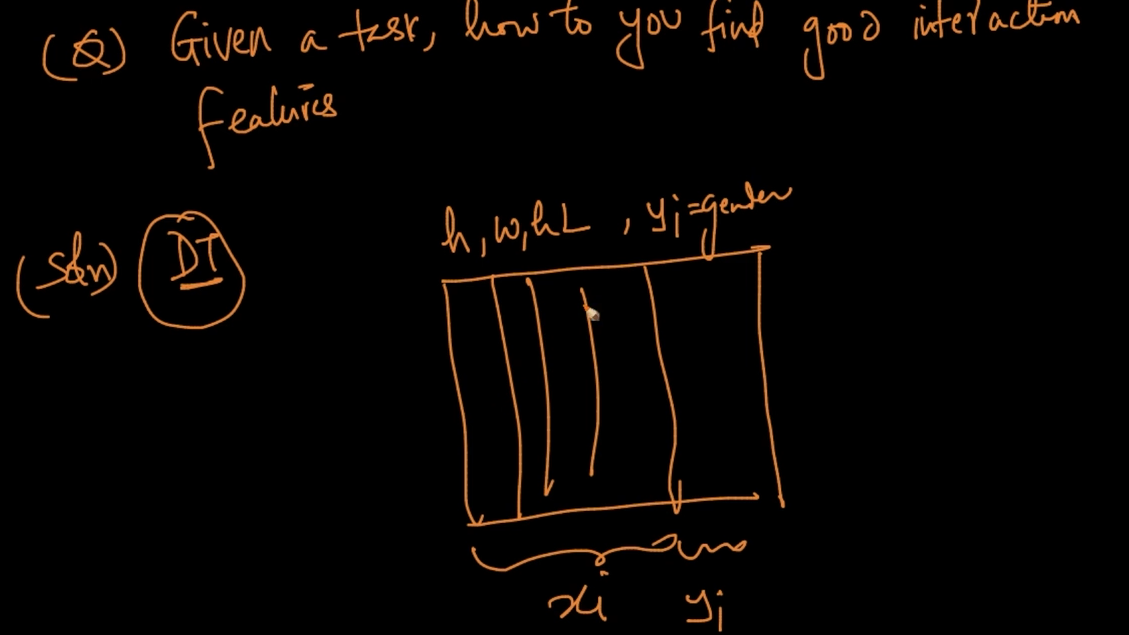 (Q) Given a task, how to you find good interaction
features
h, w, hL, yi=gender
(Soln) DT
xi yi